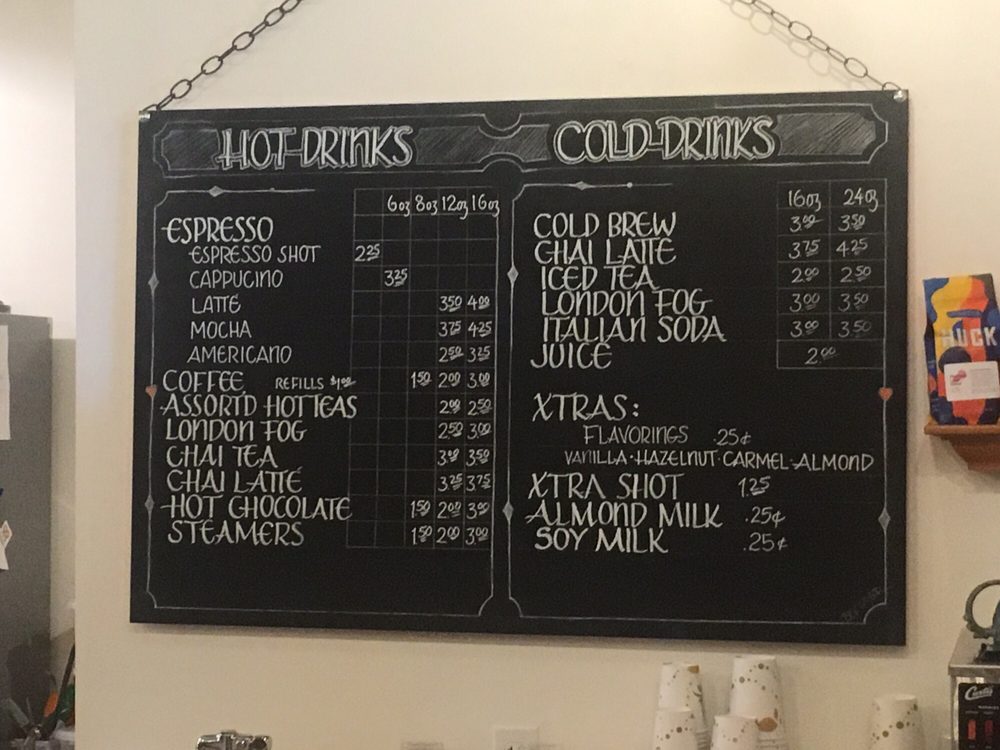 HOT DRINKS
6oz 8oz 12oz 16oz
ESPRESSO
ESPRESSO SHOT 2.25
CAPPUCINO 3.25
LATTE 3.50 4.00
MOCHA 3.75 4.25
AMERICANO 2.50 3.25
COFFEE REFILLS $1.00 1.50 2.00 3.00
ASSORT'D HOT TEAS 2.00 2.50
LONDON FOG 2.50 3.00
CHAI TEA 3.00 3.50
CHAI LATTE 3.25 3.75
HOT CHOCOLATE 1.50 2.00 3.00
STEAMERS 1.50 2.00 3.00
COLD DRINKS
16oz 24oz
COLD BREW 3.00 3.50
CHAI LATTE 3.75 4.25
ICED TEA 2.00 2.50
LONDON FOG 3.00 3.50
ITALIAN SODA 3.00 3.50
JUICE 2.00
XTRAS:
FLAVORINGS .25¢
VANILLA·HAZELNUT·CARMEL·ALMOND
XTRA SHOT 1.25
ALMOND MILK .25¢
SOY MILK .25¢
HUCK
Curtis